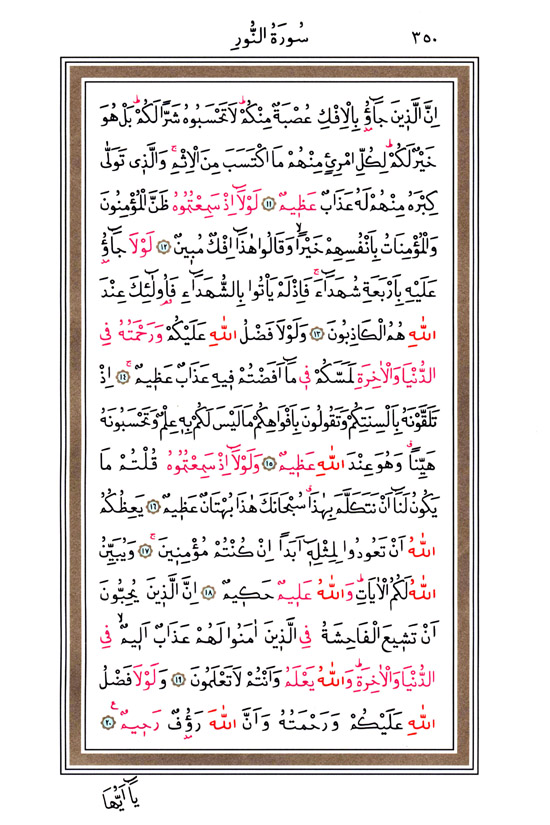 ٣٥٠
سُورَةُ النُّورِ
اِنَّ الَّذ۪ينَ جَٓاؤُ۫ بِالْاِفْكِ عُصْبَةٌ مِنْكُمْۜ لَا تَحْسَبُوهُ شَرًّا لَكُمْۜ بَلْ هُوَ
خَيْرٌ لَكُمْۜ لِكُلِّ امْرِئٍ مِنْهُمْ مَا اكْتَسَبَ مِنَ الْاِثْمِۚ وَالَّذ۪ي تَوَلّٰى
كِبْرَهُ مِنْهُمْ لَهُ عَذَابٌ عَظ۪يمٌ ﴿١١﴾ لَوْلَٓا اِذْ سَمِعْتُمُوهُ ظَنَّ الْمُؤْمِنُونَ
وَالْمُؤْمِنَاتُ بِاَنْفُسِهِمْ خَيْرًاۙ وَقَالُوا هٰذَٓا اِفْكٌ مُب۪ينٌ ﴿١٢﴾ لَوْلَا جَٓاؤُ۫
عَلَيْهِ بِاَرْبَعَةِ شُهَدَٓاءَۚ فَاِذْ لَمْ يَأْتُوا بِالشُّهَدَٓاءِ فَاُو۬لٰٓئِكَ عِنْدَ
اللّٰهِ هُمُ الْكَاذِبُونَ ﴿١٣﴾ وَلَوْلَا فَضْلُ اللّٰهِ عَلَيْكُمْ وَرَحْمَتُهُ فِي
الدُّنْيَا وَالْاٰخِرَةِ لَمَسَّكُمْ ف۪ي مَٓا اَفَضْتُمْ ف۪يهِ عَذَابٌ عَظ۪يمٌۚ ﴿١٤﴾ اِذْ
تَلَقَّوْنَهُ بِاَلْسِنَتِكُمْ وَتَقُولُونَ بِاَفْوَاهِكُمْ مَا لَيْسَ لَكُمْ بِه۪ عِلْمٌ وَتَحْسَبُونَهُ
هَيِّنًاۗ وَهُوَ عِنْدَ اللّٰهِ عَظ۪يمٌ ﴿١٥﴾ وَلَوْلَٓا اِذْ سَمِعْتُمُوهُ قُلْتُمْ مَا
يَكُونُ لَنَٓا اَنْ نَتَكَلَّمَ بِهٰذَاۗ سُبْحَانَكَ هٰذَا بُهْتَانٌ عَظ۪يمٌ ﴿١٦﴾ يَعِظُكُمُ
اللّٰهُ اَنْ تَعُودُوا لِمِثْلِه۪ٓ اَبَدًا اِنْ كُنْتُمْ مُؤْمِن۪ينَۚ ﴿١٧﴾ وَيُبَيِّنُ
اللّٰهُ لَكُمُ الْاٰيَاتِۜ وَاللّٰهُ عَل۪يمٌ حَك۪يمٌ ﴿١٨﴾ اِنَّ الَّذ۪ينَ يُحِبُّونَ
اَنْ تَش۪يعَ الْفَاحِشَةُ فِي الَّذ۪ينَ اٰمَنُوا لَهُمْ عَذَابٌ اَل۪يمٌۙ فِي
الدُّنْيَا وَالْاٰخِرَةِۜ وَاللّٰهُ يَعْلَمُ وَاَنْتُمْ لَا تَعْلَمُونَ ﴿١٩﴾ وَلَوْلَا فَضْلُ
اللّٰهِ عَلَيْكُمْ وَرَحْمَتُهُ وَاَنَّ اللّٰهَ رَؤُ۫فٌ رَح۪يمٌ۟ ﴿٢٠﴾
يَٓا اَيُّهَا